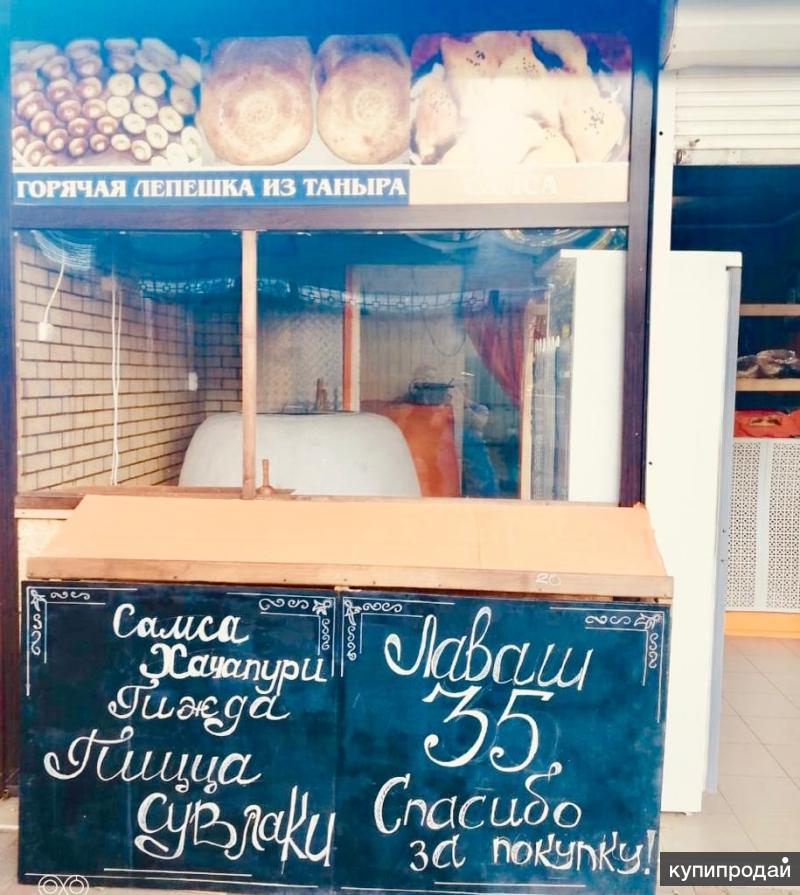 ГОРЯЧАЯ ЛЕПЕШКА ИЗ ТАНЫРА
САМСА
20
Самса
Хачапури
Гижда
Пицца
Сувлаки
Лаваш
35
Спасибо
за покупку!
купипродай